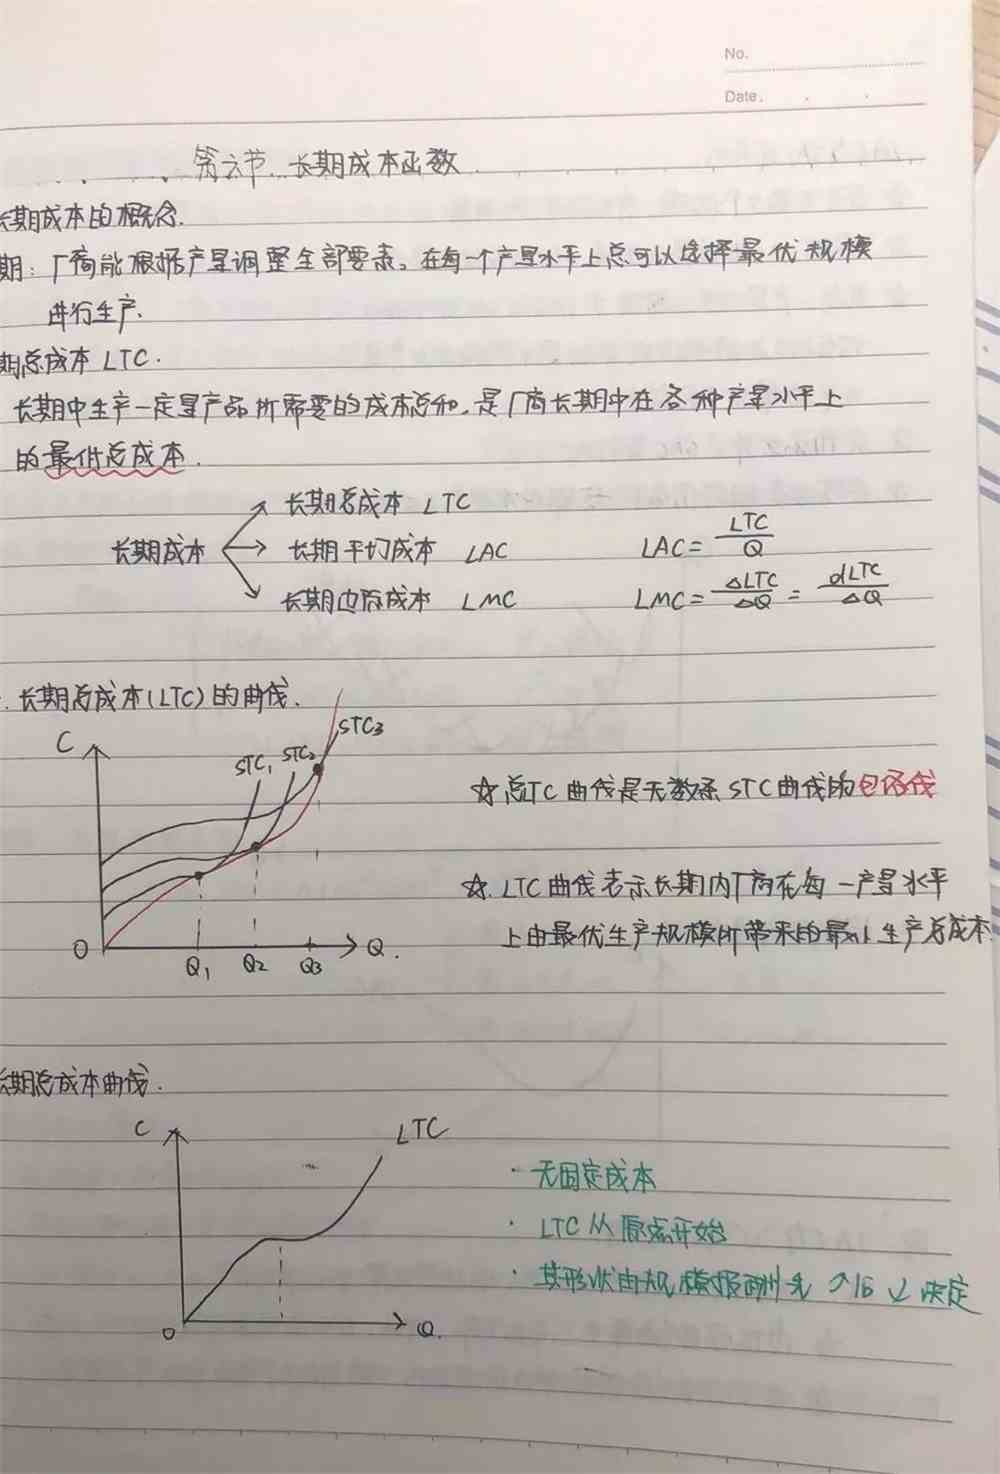 No.
Date.
第六节 长期成本函数
长期成本的概念.
期：厂商能根据产量调整全部要素。在每一个产量水平上总可以选择最优规模
进行生产.
期总成本 LTC.
长期中生产一定量产品所需要的成本总和，是厂商长期中在各种产量水平上
的最低总成本.
长期总成本 LTC
长期成本 长期平均成本 LAC LAC=LTC/Q
长期边际成本 LMC LMC=△LTC/△Q=dLTC/△Q
. 长期总成本(LTC)的曲线.
C
STC1 STC2 STC3
☆总TC曲线是无数条STC曲线的包络线
☆.LTC曲线表示长期内厂商在每一产量水平
上由最优生产规模所带来的最小生产总成本.
O Q1 Q2 Q3 Q.
长期总成本曲线.
C LTC
·无固定成本
·LTC从原点开始
·其形状由规模报酬先↗后↙决定
O Q.